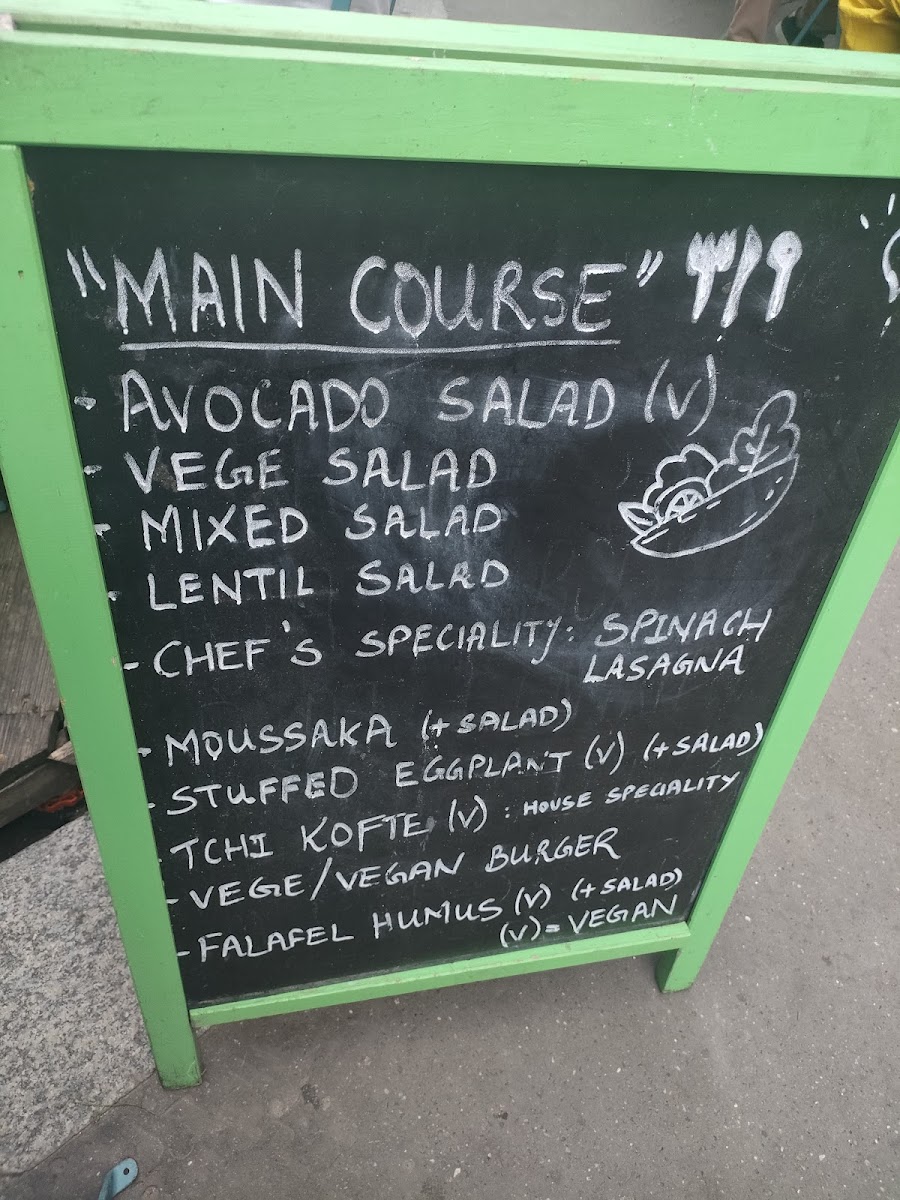 "MAIN COURSE"
- AVOCADO SALAD (V)
- VEGE SALAD
- MIXED SALAD
- LENTIL SALAD
- CHEF'S SPECIALITY: SPINACH
LASAGNA
- MOUSSAKA (+ SALAD)
- STUFFED EGGPLANT (V) (+ SALAD)
- TCHI KOFTE (V) : HOUSE SPECIALITY
- VEGE/VEGAN BURGER
- FALAFEL HUMUS (V) (+ SALAD)
(V) = VEGAN